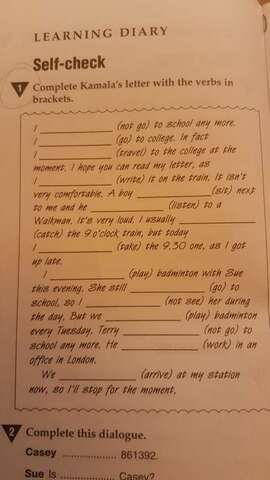 LEARNING DIARY
Self-check
1 Complete Kamala's letter with the verbs in
brackets.
I ____________ (not go) to school any more.
I ____________ (go) to college. In fact
I ____________ (travel) to the college at the
moment. I hope you can read my letter, as
I ____________ (write) it on the train. It isn't
very comfortable. A boy ____________ (sit) next
to me and he ____________ (listen) to a
Walkman. It's very loud. I usually ____________
(catch) the 9 o'clock train, but today
I ____________ (take) the 9.30 one, as I got
up late.
I ____________ (play) badminton with Sue
this evening. She still ____________ (go) to
school, so I ____________ (not see) her during
the day. But we ____________ (play) badminton
every Tuesday. Terry ____________ (not go) to
school any more. He ____________ (work) in an
office in London.
We ____________ (arrive) at my station
now, so I'll stop for the moment.
2 Complete this dialogue.
Casey .................. 861392.
Sue Is .................. Casey?